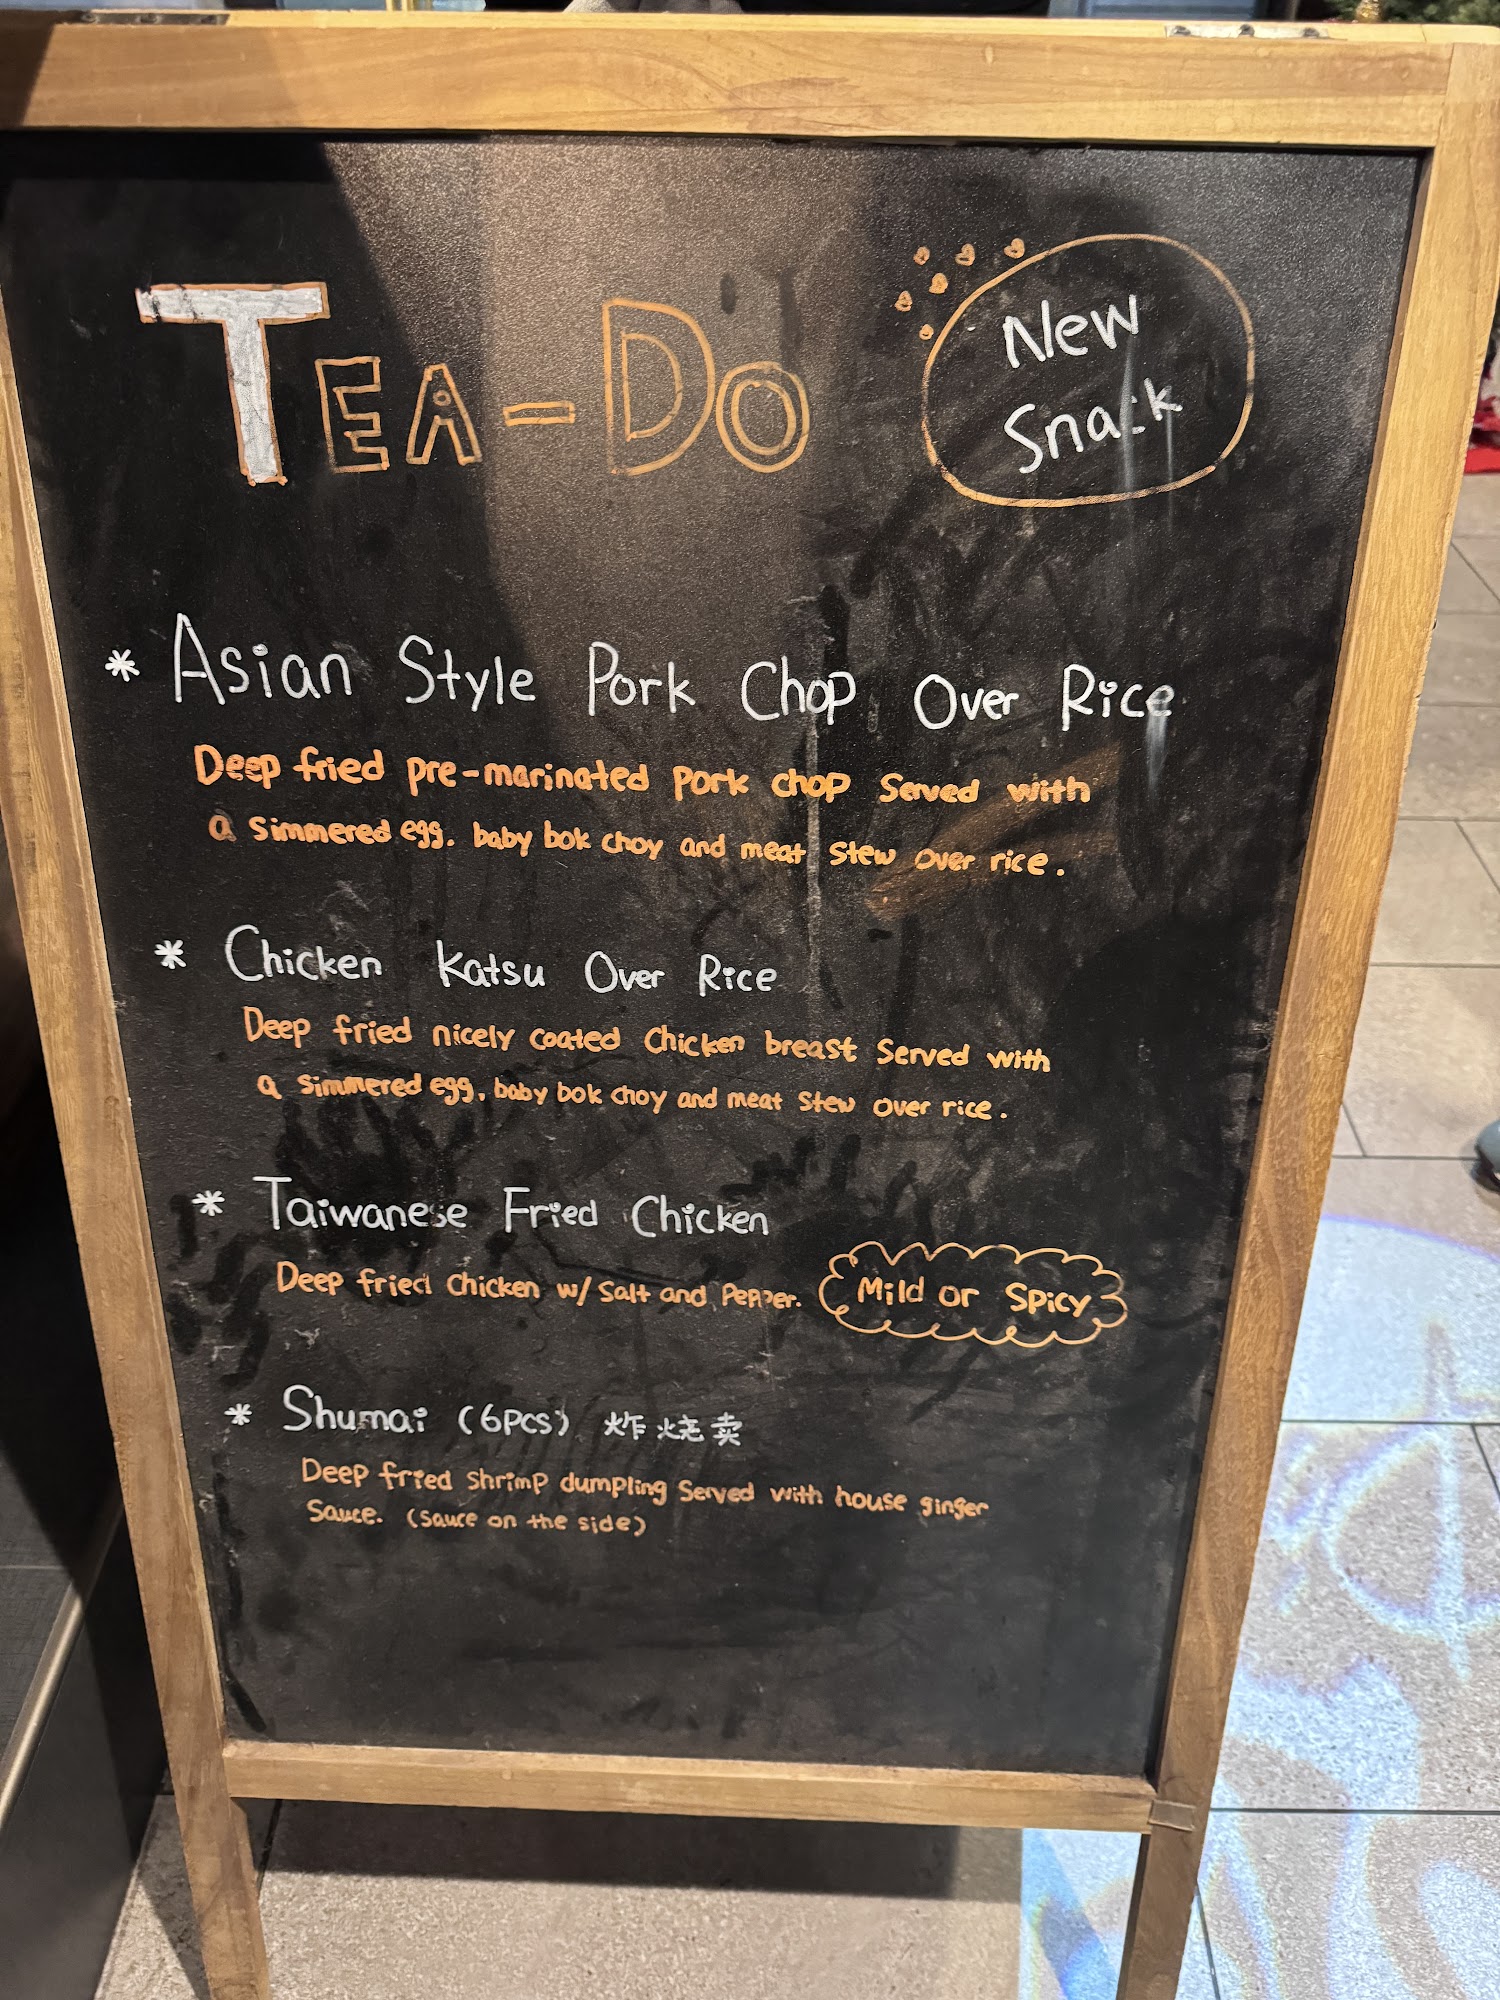 TEA-DO
New
Snack
* Asian Style Pork Chop Over Rice
Deep fried pre-marinated pork chop served with
a simmered egg, baby bok choy and meat stew over rice.
* Chicken Katsu Over Rice
Deep fried nicely coated chicken breast served with
a simmered egg, baby bok choy and meat stew over rice.
* Taiwanese Fried Chicken
Deep fried chicken w/ salt and pepper.
Mild or Spicy
* Shumai (6pcs) 炸烧卖
Deep fried shrimp dumpling served with house ginger
sauce. (sauce on the side)